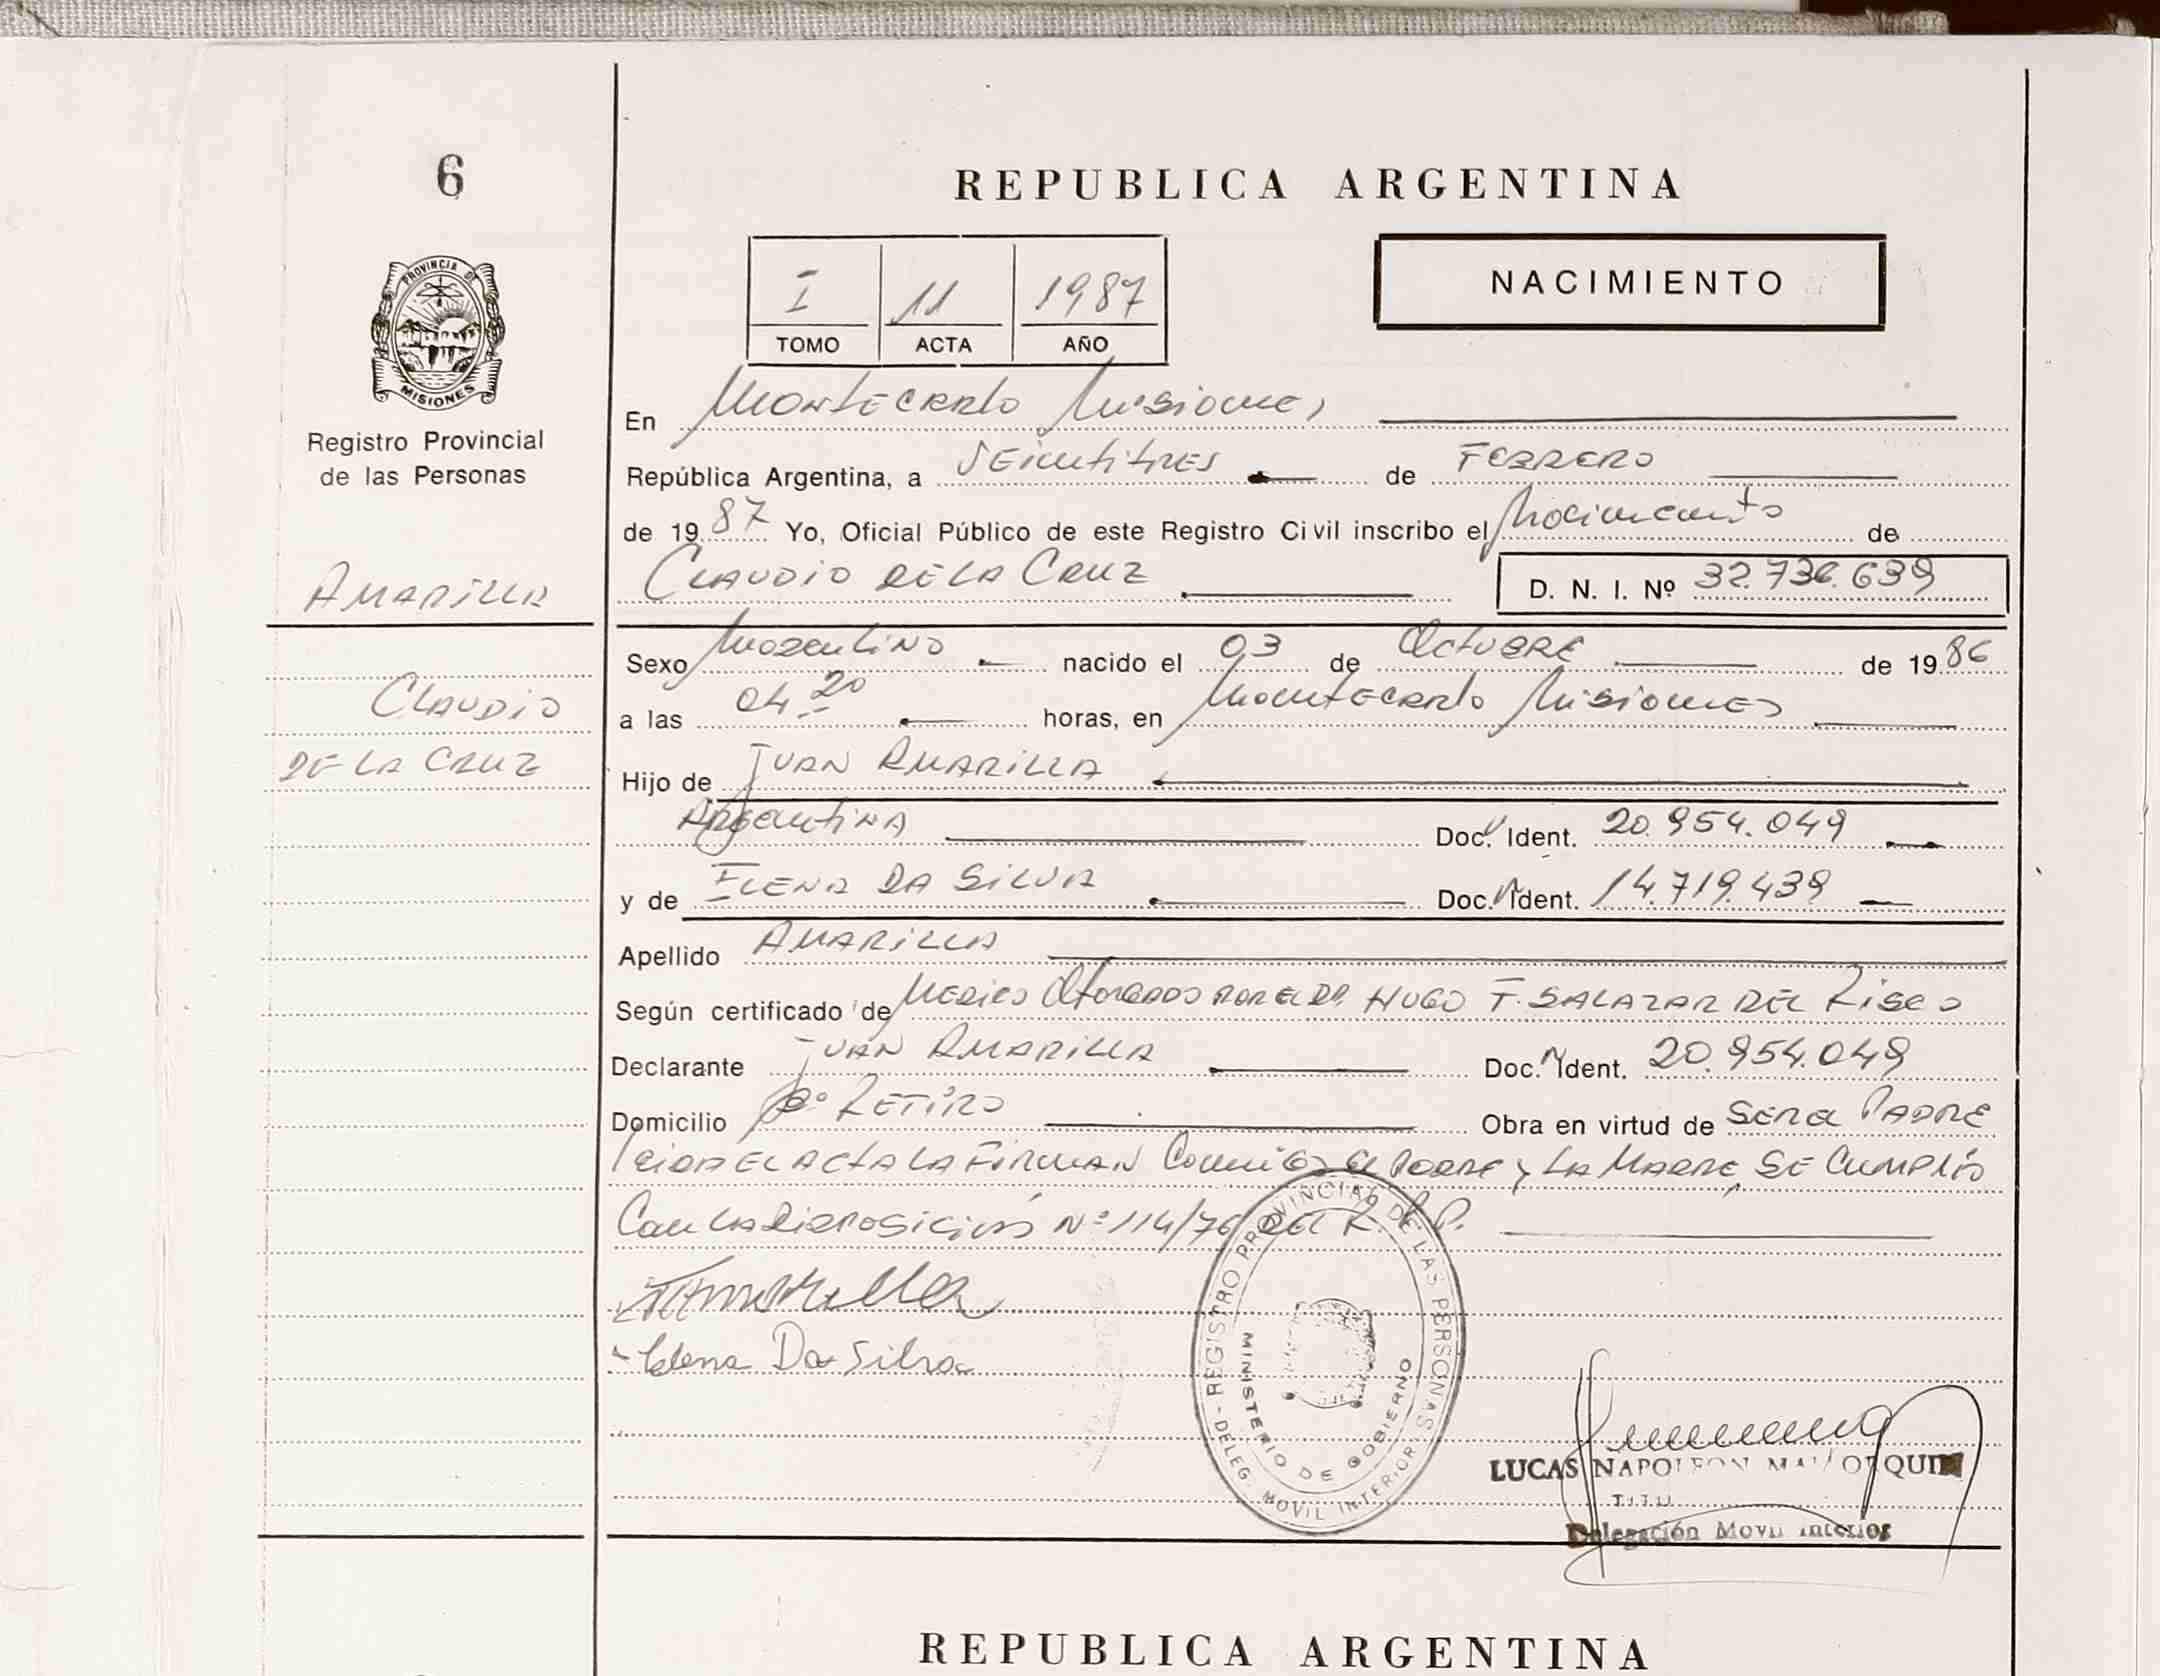 6
REPUBLICA ARGENTINA
PROVINCIA DE
MISIONES
Registro Provincial
de las Personas
I 11 1987
TOMO ACTA AÑO
NACIMIENTO
En Montecarlo Misiones
República Argentina, a Veintitres de FEBRERO
de 1987 Yo, Oficial Público de este Registro Civil inscribo el Nacimiento de
AMARILLA
CLAUDIO DE LA CRUZ D. N. I. Nº 32.736.639
Sexo Masculino nacido el 03 de OCTUBRE de 1986
CLAUDIO
a las 04 20 horas, en Montecarlo Misiones
DE LA CRUZ
Hijo de JUAN AMARILLA
Argentina Doc. Ident. 20.954.049
y de ELENA DA SILVA Doc. Ident. 14.719.439
Apellido AMARILLA
Según certificado de MEDICO OTORGADO POR EL DR. HUGO F. SALAZAR DEL Risco
Declarante JUAN AMARILLA Doc. Ident. 20.954.049
Domicilio Pº RETIRO Obra en virtud de SER EL PADRE
leida EL ACTA LA FIRMAN Conmigo el PADRE y LA MADRE, SE CUMPLIO
Con LA DISPOSICION Nº 114/76 DEL R. P. P.
Amarilla
Elena Da Silva
REGISTRO PROVINCIAL DE LAS PERSONAS
MINISTERIO DE GOBIERNO
DELEG. MOVIL INTERIOR
LUCAS NAPOLEON MALLORQUIN
Delegación Movil Interior
REPUBLICA ARGENTINA